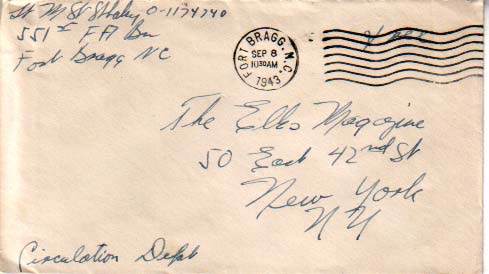 Lt M St 0-1174740
551st F A Bn
Fort Bragg NC
FORT BRAGG, N.C.
SEP 8
10 30 AM
1943
Free
The Elks Magazine
50 East 42nd St
New York
NY
Circulation Dept